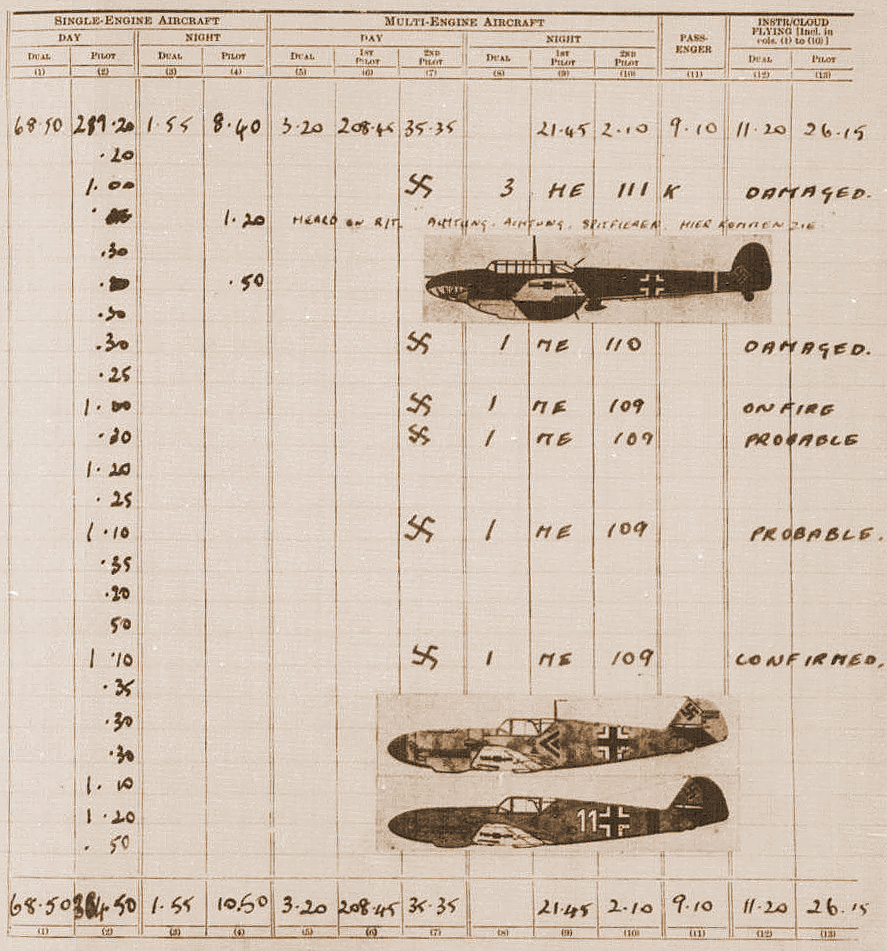 SINGLE-ENGINE AIRCRAFT MULTI-ENGINE AIRCRAFT PASS-ENGER INSTR/CLOUD FLYING [Incl. in cols. (1) to (10)]
DAY NIGHT DAY NIGHT
DUAL PILOT DUAL PILOT DUAL 1ST PILOT 2ND PILOT DUAL 1ST PILOT 2ND PILOT DUAL PILOT
(1) (2) (3) (4) (5) (6) (7) (8) (9) (10) (11) (12) (13)
68.50 289.20 1.55 8.40 3.20 208.45 35.35 21.45 2.10 9.10 11.20 26.15
.20
1.00 卐 3 HE 111 K DAMAGED.
1.20 HEARD ON R/T. ACHTUNG. ACHTUNG. SPITFIEREN. HIER KOMMEN ZIE
.30
.50
.30
.30 卐 1 ME 110 DAMAGED.
.25
1.00 卐 1 ME 109 ON FIRE
.30 卐 1 ME 109 PROBABLE
1.20
.25
1.10 卐 1 ME 109 PROBABLE.
.35
.20
50
1.10 卐 1 ME 109 CONFIRMED.
.35
.30
.30
1.10
1.20
11
.50
68.50 50 1.55 10.50 3.20 208.45 35.35 21.45 2.10 9.10 11.20 26.15
(1) (2) (3) (4) (5) (6) (7) (8) (9) (10) (11) (12) (13)